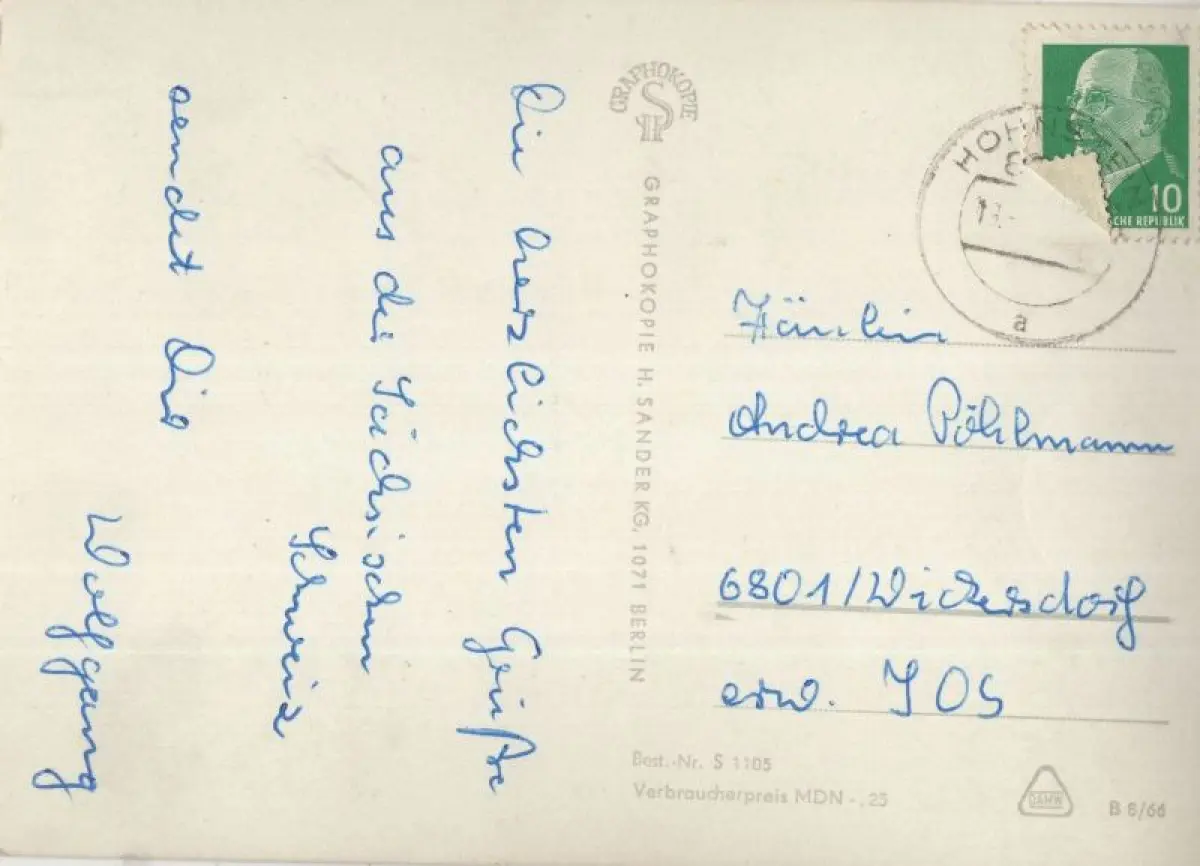 Die herzlichsten Grüße
aus der Sächsischen
Schweiz
sendet Dir
Wolfgang
GRAPHOKOPIE
GRAPHOKOPIE H. SANDER KG, 1071 BERLIN
10
CHE REPUBLIK
a
Fräulein
Andrea Pöhlmann
6801/Wickersdorf
erw. JOS
Best.-Nr. S 1105
Verbraucherpreis MDN -,25
DAMW
B 8/66